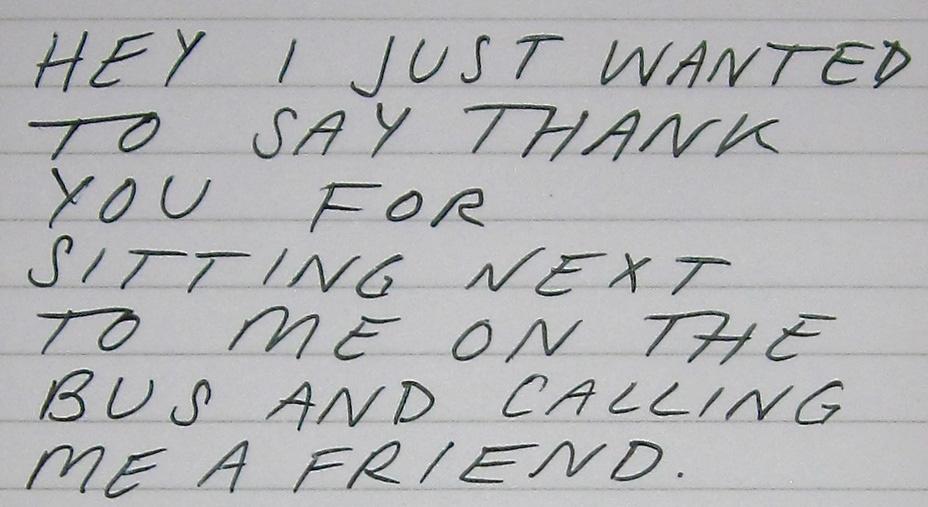 HEY I JUST WANTED
TO SAY THANK
YOU FOR
SITTING NEXT
TO ME ON THE
BUS AND CALLING
ME A FRIEND.